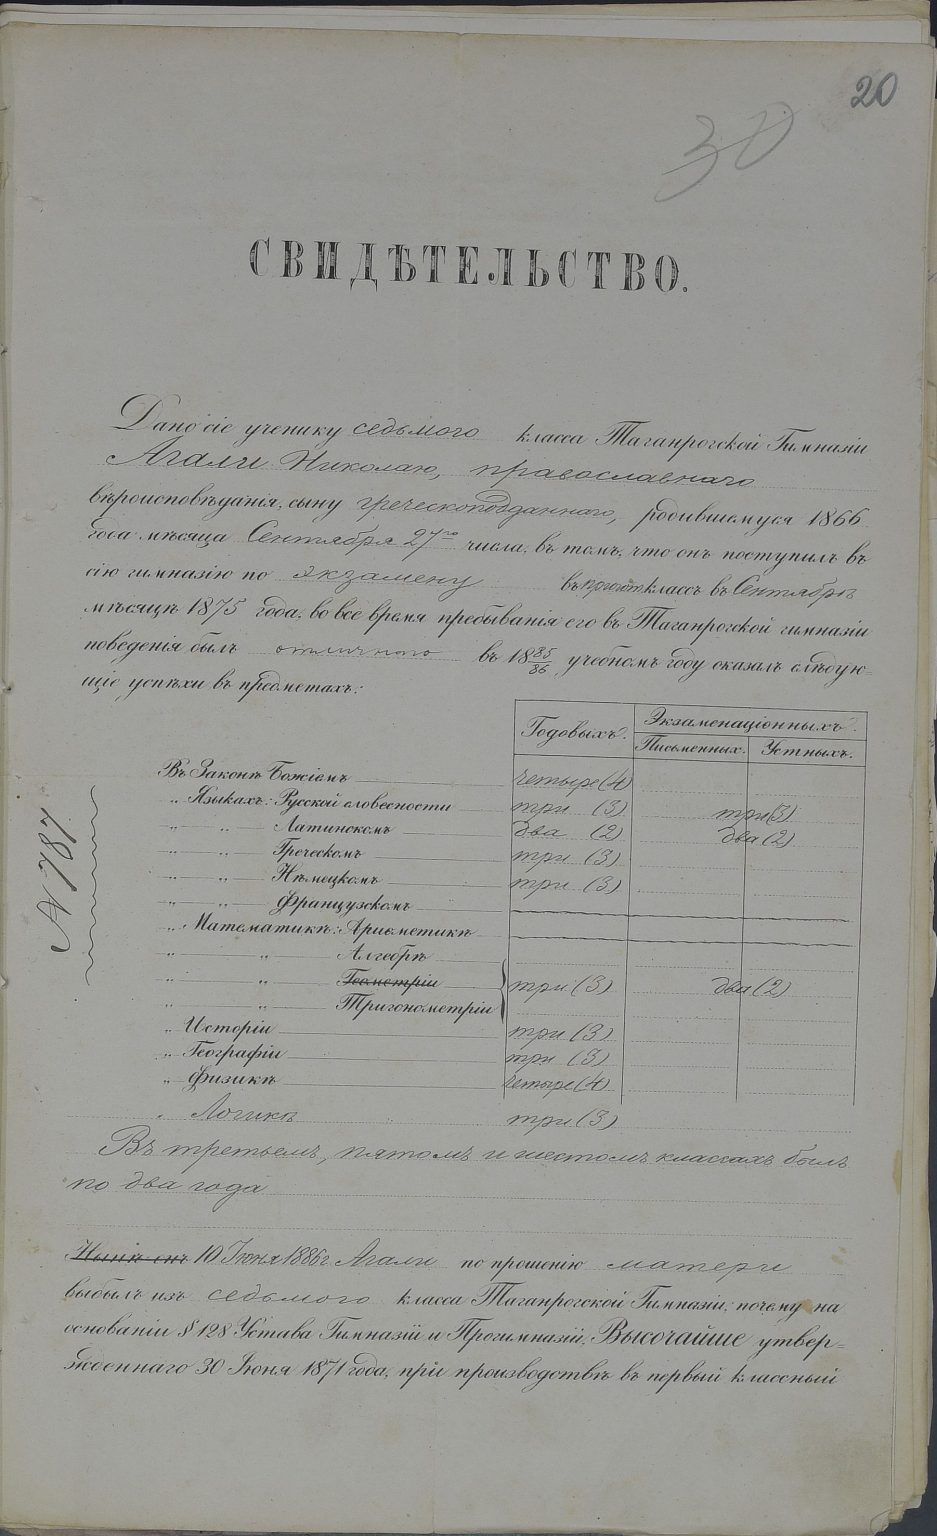 20
30
СВИДѢТЕЛЬСТВО.
Дано сіе ученику седьмого класса Таганрогской Гимназіи
Агали Николаю, православнаго
вѣроисповѣданія, сыну греческоподданнаго, родившемуся 1866
года мѣсяца Сентября 27го числа, въ томъ, что онъ поступилъ въ
сію гимназію по экзамену въ пригот классъ въ Сентябрѣ
мѣсяцѣ 1875 года, во все время пребыванія его въ Таганрогской гимназіи
поведенія былъ отличного въ 18 85/86 учебномъ году оказалъ слѣдую-
щіе успѣхи въ предметахъ:
Годовыхъ. Экзаменаціонныхъ.
Письменныхъ. Устныхъ.
Въ Законѣ Божіемъ четыре (4)
„ Языкахъ: Русской словесности три (3) три (3)
„ „ Латинскомъ два (2) два (2)
„ „ Греческомъ три (3)
„ „ Нѣмецкомъ три (3)
„ „ Французскомъ
„ Математикѣ: Ариѳметикѣ
„ „ Алгебрѣ
„ „ Геометріи три (3) два (2)
„ „ Тригонометріи
„ Исторіи три (3)
„ Географіи три (3)
„ Физикѣ четыре (4)
„ Логикѣ три (3)
№ 787
Въ третьемъ, пятомъ и шестомъ классахъ былъ
по два года
Нынѣ онъ 10 Іюня 1886 г Агали по прошенію матери
выбылъ изъ седьмого класса Таганрогской Гимназіи, почему на
основаніи § 128 Устава Гимназій и Прогимназій, Высочайше утвер-
жденнаго 30 Іюня 1871 года, при производствѣ въ первый классный